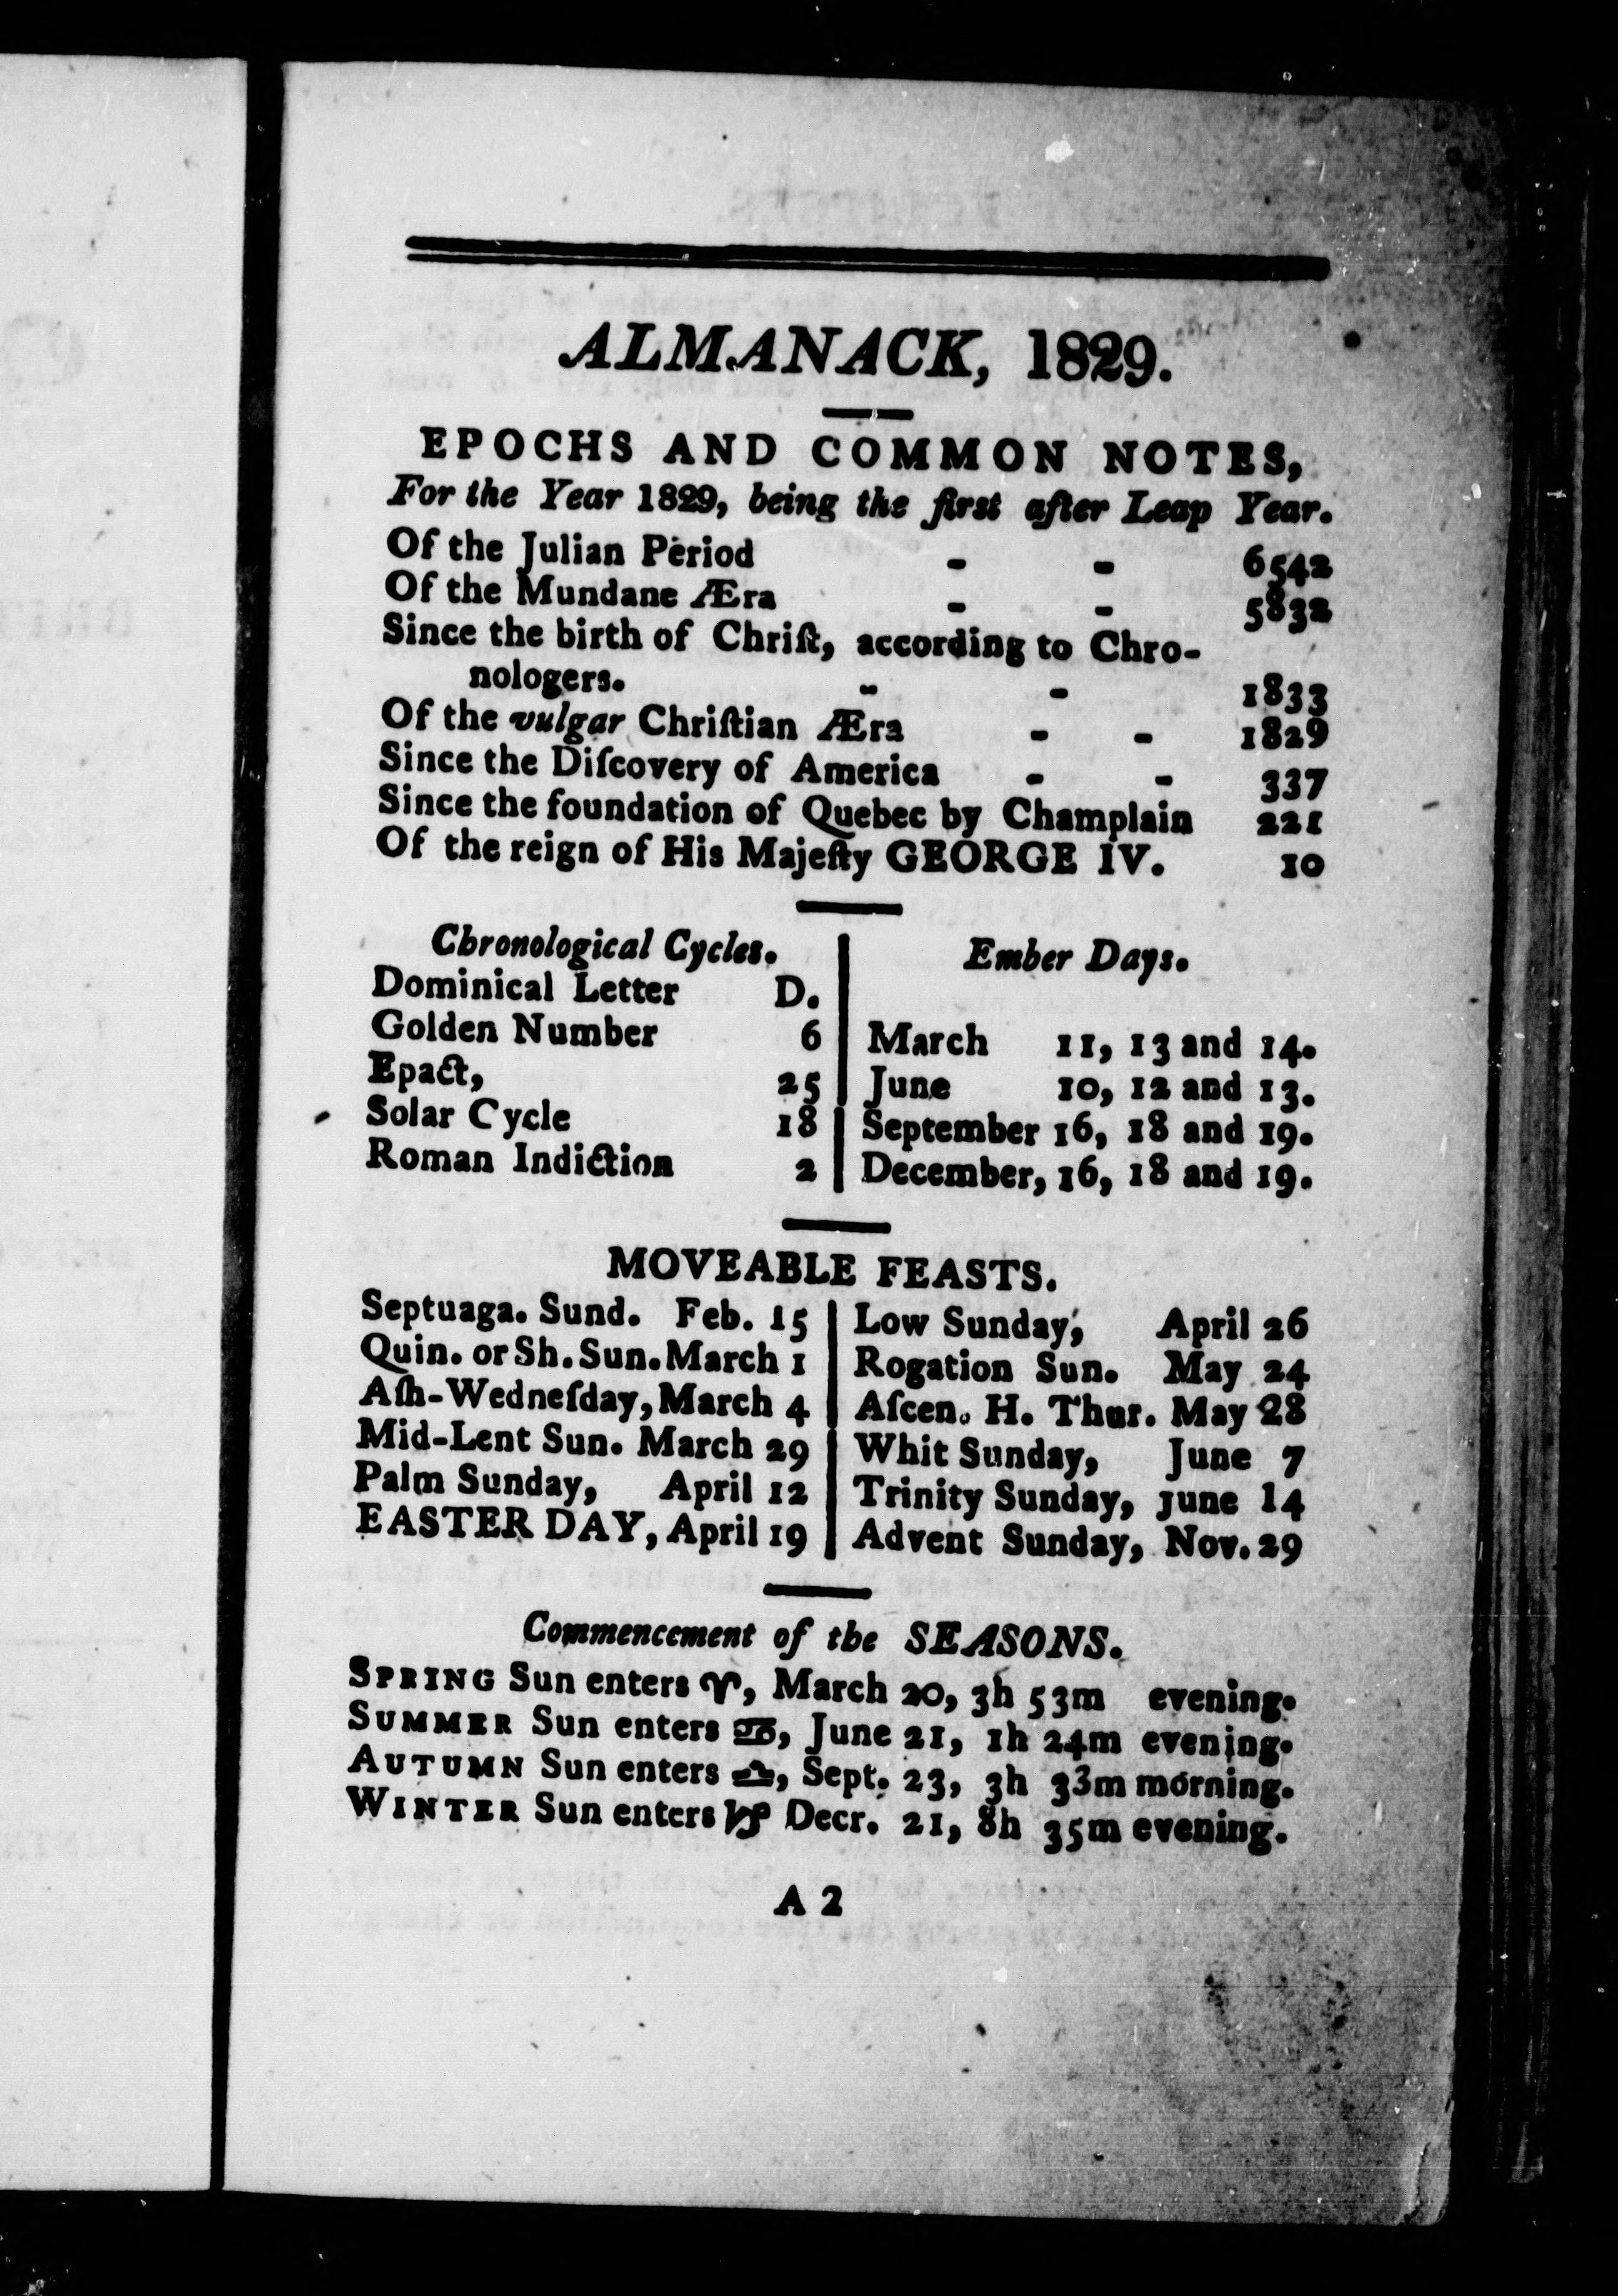 ALMANACK, 1829.
EPOCHS AND COMMON NOTES,
For the Year 1829, being the first after Leap Year.
Of the Julian Period - - 6542
Of the Mundane Æra - - 5832
Since the birth of Chriſt, according to Chro-
nologers. - - 1833
Of the vulgar Chriſtian Æra - - 1829
Since the Diſcovery of America - - 337
Since the foundation of Quebec by Champlain 221
Of the reign of His Majeſty GEORGE IV. 10
Chronological Cycles.
Dominical Letter D.
Golden Number 6
Epact, 25
Solar Cycle 18
Roman Indiction 2
Ember Days.
March 11, 13 and 14.
June 10, 12 and 13.
September 16, 18 and 19.
December, 16, 18 and 19.
MOVEABLE FEASTS.
Septuaga. Sund. Feb. 15
Quin. or Sh. Sun. March 1
Aſh-Wedneſday, March 4
Mid-Lent Sun. March 29
Palm Sunday, April 12
EASTER DAY, April 19
Low Sunday, April 26
Rogation Sun. May 24
Aſcen. H. Thur. May 28
Whit Sunday, June 7
Trinity Sunday, June 14
Advent Sunday, Nov. 29
Commencement of the SEASONS.
SPRING Sun enters ♈, March 20, 3h 53m evening.
SUMMER Sun enters ♋, June 21, 1h 24m evening.
AUTUMN Sun enters ♎, Sept. 23, 3h 33m morning.
WINTER Sun enters ♑ Decr. 21, 8h 35m evening.
A 2